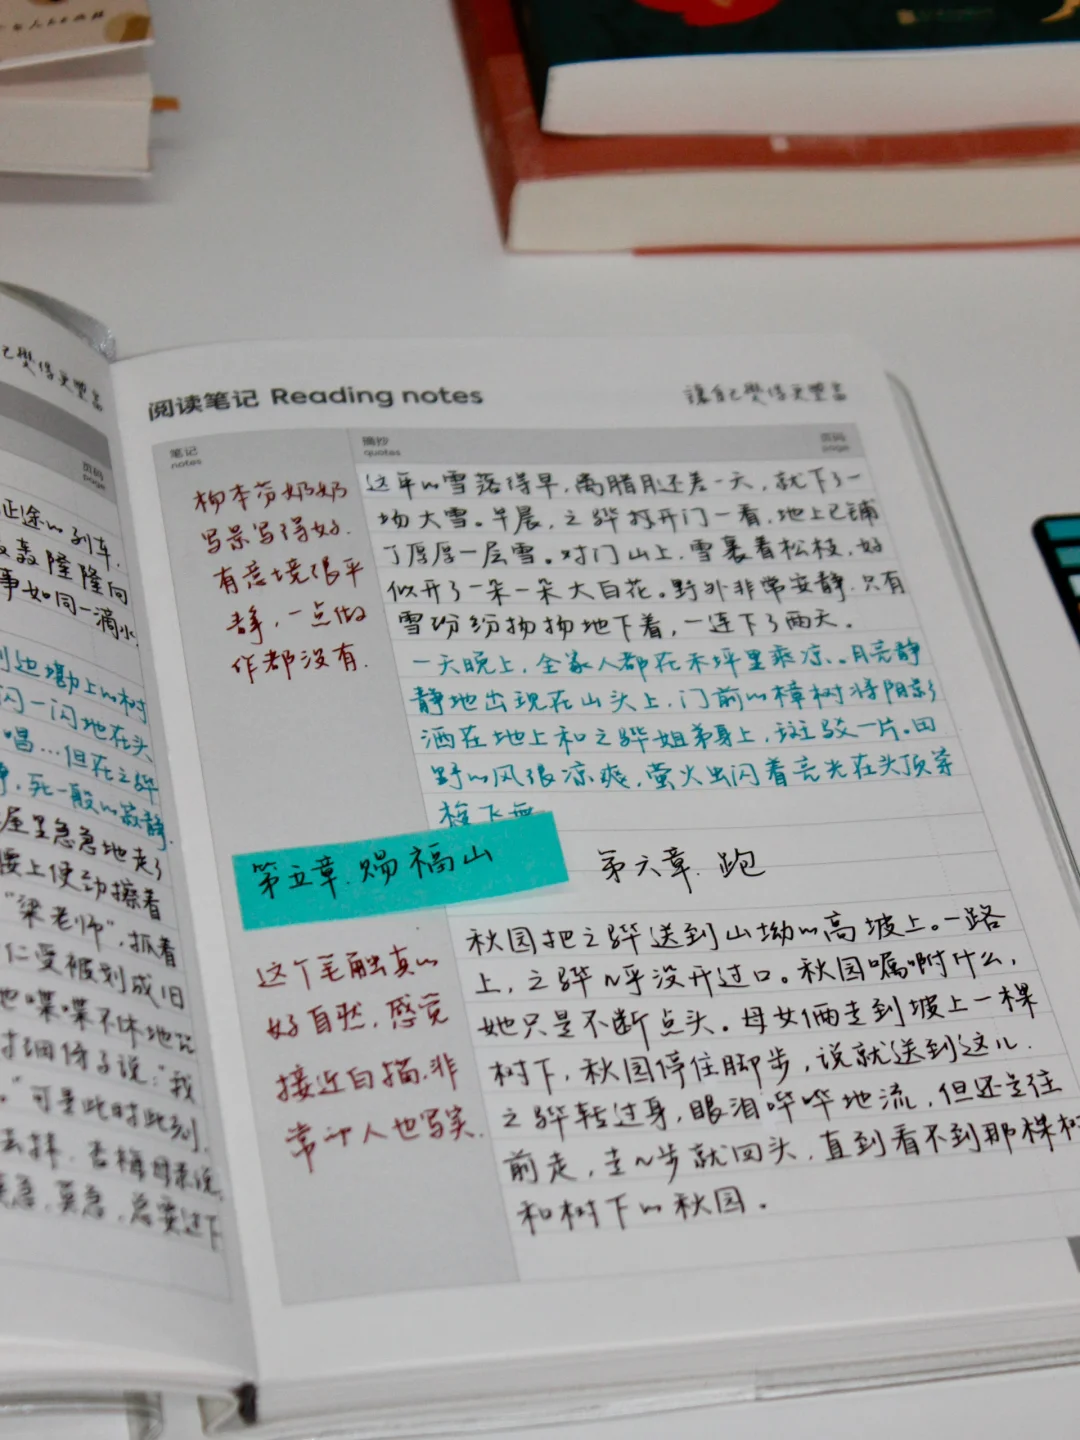 页码
page
征途的列车
轰隆隆向
事如同一滴水
边墈上的树
闪一闪地在头
唱…但在之骅
静，死一般的寂静.
屋里急急地走了
腰上使劲擦着
“梁老师”，抓着
仁受被划成旧
喋喋不休地说
说：“我
”可是此时此刻，
阅读笔记 Reading notes
讓自己變得更豐富
笔记
notes
摘抄
quotes
页码
page
杨本芬奶奶
写景写得好.
有意境很平
静，一点做
作都没有.
这年的雪落得早，离腊月还差一天，就下了一
场大雪。早晨，之骅打开门一看，地上已铺
了厚厚一层雪。对门山上，雪裹着松枝，好
似开了一朵一朵大白花。野外非常安静，只有
雪纷纷扬扬地下着，一连下了两天。
一天晚上，全家人都在禾坪里乘凉。月亮静
静地出现在山头上，门前的樟树将阴影
洒在地上和之骅姐弟身上，斑驳一片。田
野的风很凉爽，萤火虫闪着亮光在头顶穿
梭飞舞
第五章.赐福山
第六章.跑
这个笔触真的
好自然，感觉
接近白描，非
常 人也写实.
秋园把之骅送到山坳的高坡上。一路
上，之骅几乎没开过口。秋园嘱咐什么，
她只是不断点头。母女俩走到坡上一棵
树下，秋园停住脚步，说就送到这儿.
之骅转过身，眼泪哗哗地流，但还是往
前走，走几步就回头，直到看不到那棵树
和树下的秋园。